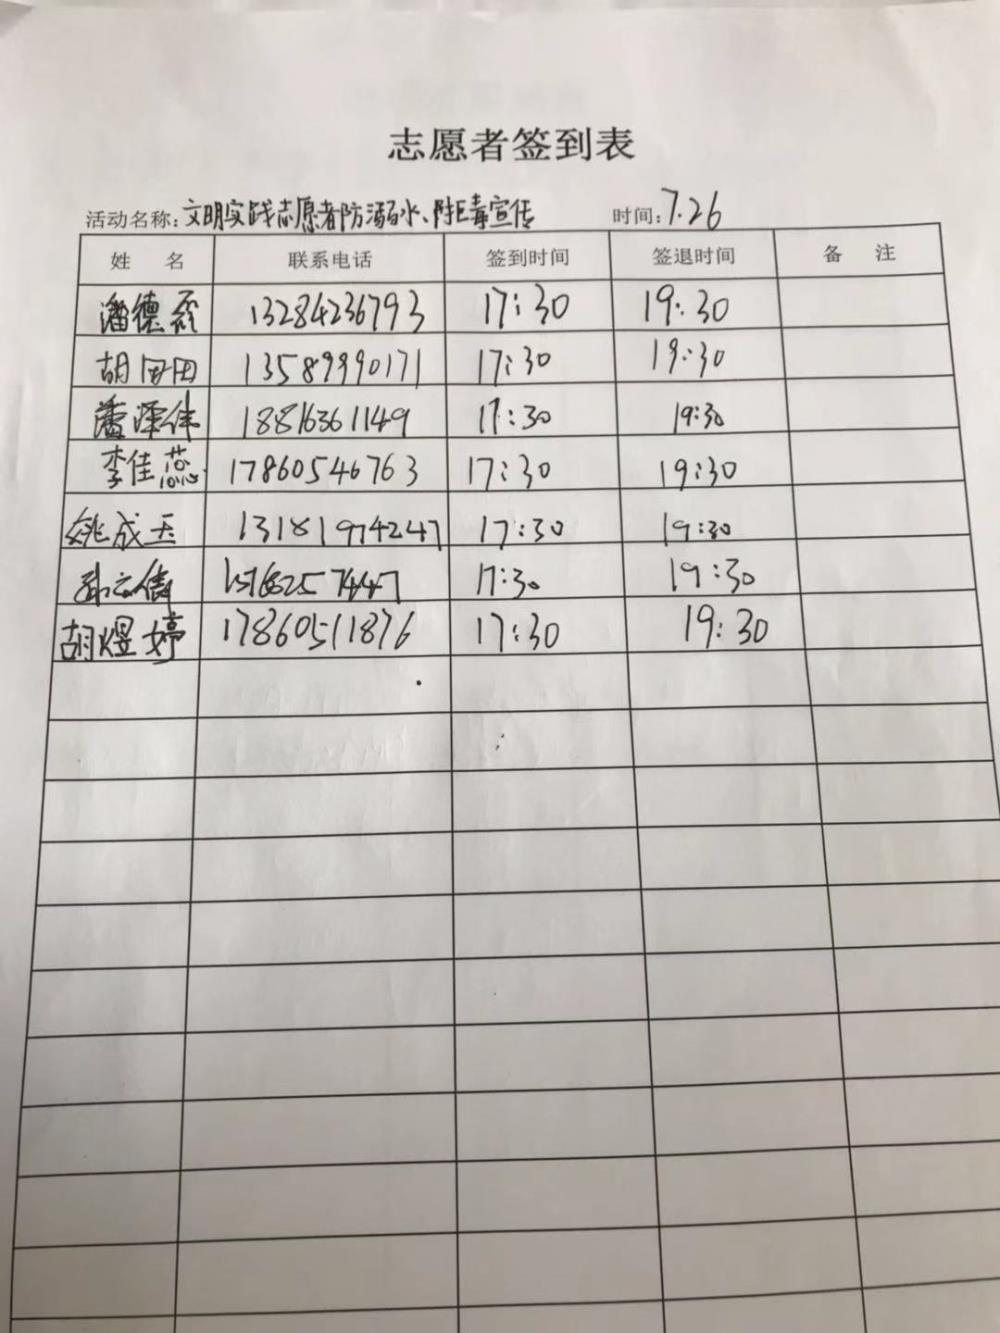 志愿者签到表
活动名称:文明实践志愿者防溺水、防巨毒宣传 时间:7.26
姓 名 联系电话 签到时间 签退时间 备 注
潘德 13284236793 17:30 19:30
胡田田 13589990171 17:30 19:30
潘泽伟 18816361149 17:30 19:30
李佳蕊 17860546763 17:30 19:30
姚成玉 13181974247 17:30 19:30
孙云倩 15168257447 17:30 19:30
胡煜婷 17860511876 17:30 19:30